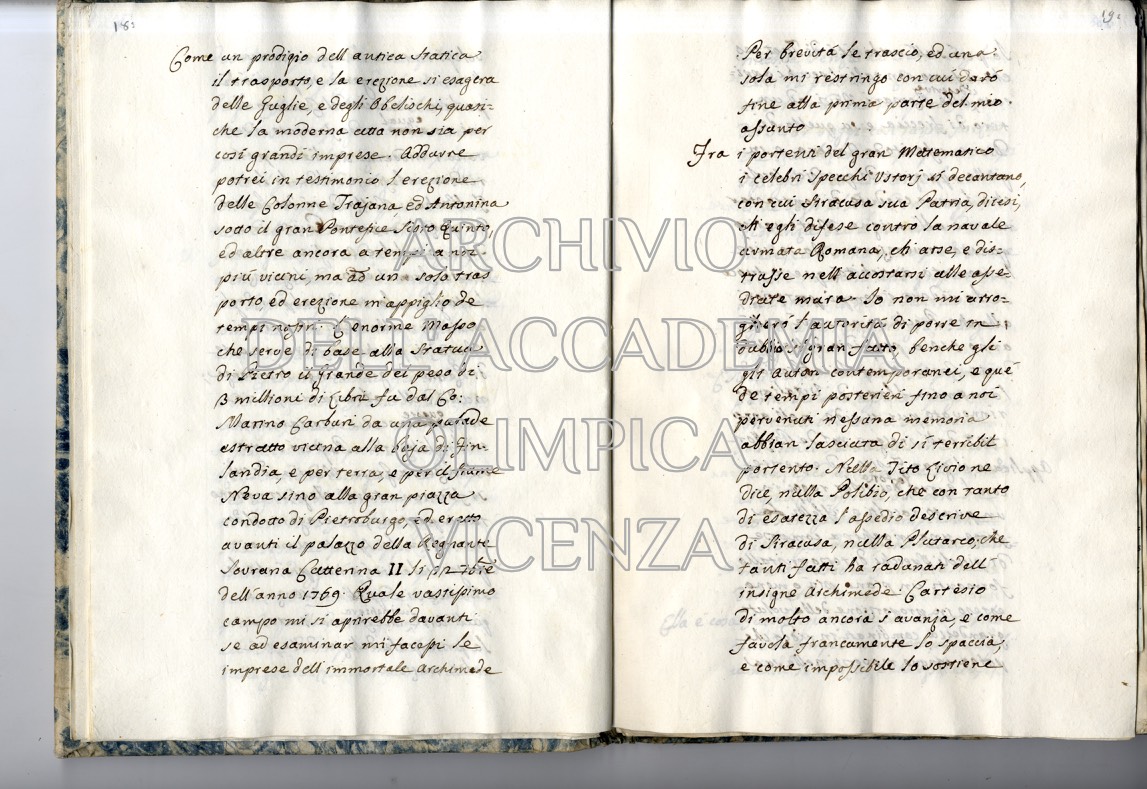 18:
Come un prodigio dell antica statica
il trasporto, e la erezione si esagera
delle Guglie, e degli Obelischi, quasi=
che la moderna atta non sia per
così grandi imprese. Addurre
potrei in testimonio l'erezione
delle Colonne Trajana, ed Antonina
sotto il gran Pontefice Sisto Quinto,
ed altre ancora a tempi a noi
più vicini, ma ad un solo tras
porto ed erezione m'appiglio de
tempi nostri. L'enorme Masso
che serve di base alla Statua
di Pietro il grande del peso di
3 millioni di Libre fu dal Co:
Marino Carburi da una palude
estratto vicina alla baja di Fin-
landia, e per terra, e per il fiume
Neva sino alla gran piazza
condotto di Pietroburgo, ed eretto
avanti il palazzo della Regnante
Sovrana Catterina II li
dell'anno 1769. Quale vastissimo
campo mi si aprirebbe davanti
se ad esaminar mi facessi le
imprese dell immortale Archimede
19:
Per brevità le trascio, ed una
sola mi restringo con cui darò
fine alla prima parte del mio
assunto
Fra i portenti del gran Matematico
i celebri Specchi Ustorj si decantano,
con cui Siracusa sua Patria, dicesi,
ch'egli difese contro la navale
armata Romana, ch'arse, e dis=
trusse nell'accostarsi alle asse=
diate mura. Io non mi arro=
gherò l'autorità di porre in
dubbio sì gran fatto, benche gli
gli autori contemporanei, e que'
de tempi posteriori fino a noi
pervenuti nessuna memoria
abbian lasciata di sì terribil
portento. Nulla Tito Livio ne
dice, nulla Polibio, che con tanto
di esatezza l'assedio descrive
di Siracusa, nulla Plutarco, che
tanti fatti ha radunati dell
insigne Archimede. Cartesio
di molto ancora s'avanza, e come
favola francamente lo spaccia,
e come impossibile lo sostiene
ARCHIVIO
DELL'ACCADEMIA
OLIMPICA
VICENZA